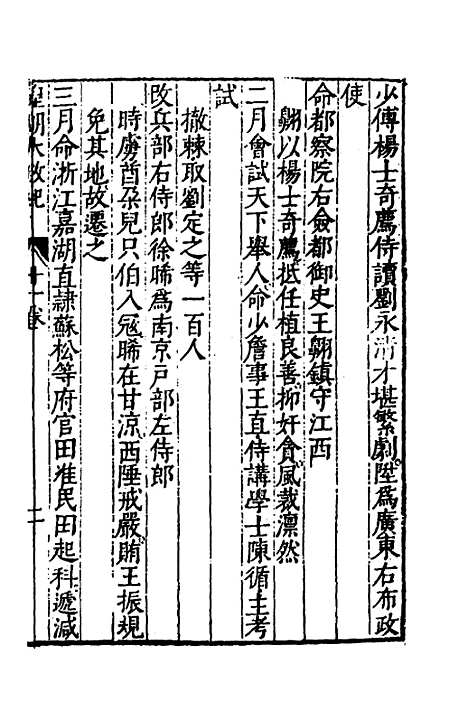 少傅楊士奇薦侍讀劉永清才堪繁劇陞爲廣東右布政
使
命都察院右僉都御史王翱鎮守江西
翱以楊士奇薦抵任植良善抑奸貪風裁凛然
二月會試天下舉人命少詹事王直侍講學士陳循主考
試
撤棘取劉定之等一百人
改兵部右侍郎徐晞爲南京戸部左侍郎
時虜酋朶兒只伯入冦晞在甘凉西陲戒嚴賄王振規
免其地故遷之
三月命浙江嘉湖直隷蘇松等府官田准民田起科遞減
皇明大政紀 十一卷 二